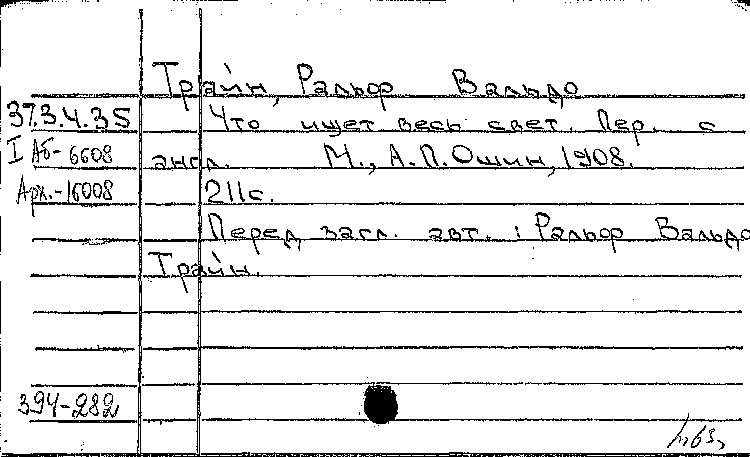 Трайн, Ральф Вальдо
37.3.4.35 Что ищет весь свет. Пер. с
I Аб-6608 англ. М., А.П.Ошин, 1908.
Арх.-16008 211с.
Перед загл. авт. : Ральф Вальдо
Трайн.
394-282